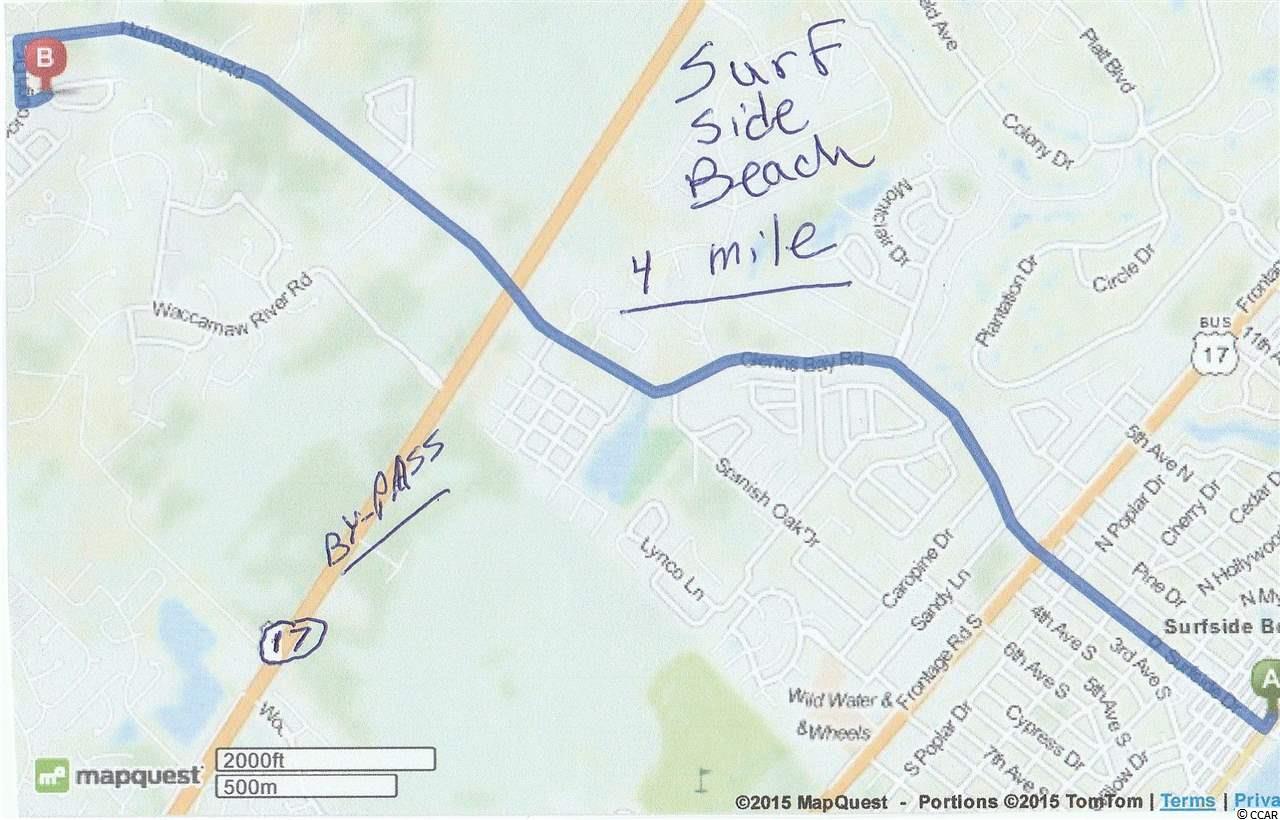 Holmestown Rd
B
Surf
side
Beach
4 mile
Platt Blvd
Colony Dr
Montclair Dr
Plantation Dr
Circle Dr
BUS
17
Waccamaw River Rd
Glenns Bay Rd
5th Ave N
N Poplar Dr
Cherry Dr
BY-PASS
Spanish Oak Dr
Lynco Ln
Caropine Dr
Sandy Ln
Frontage Rd S
Pine Dr
4th Ave S
3rd Ave S
6th Ave S
5th Ave S
Surfside Dr
A
17
Wild Water &
& Wheels
S Poplar Dr
Cypress Dr
7th Ave S
mapquest
2000ft
500m
©2015 MapQuest - Portions ©2015 TomTom | Terms |
© CCAR